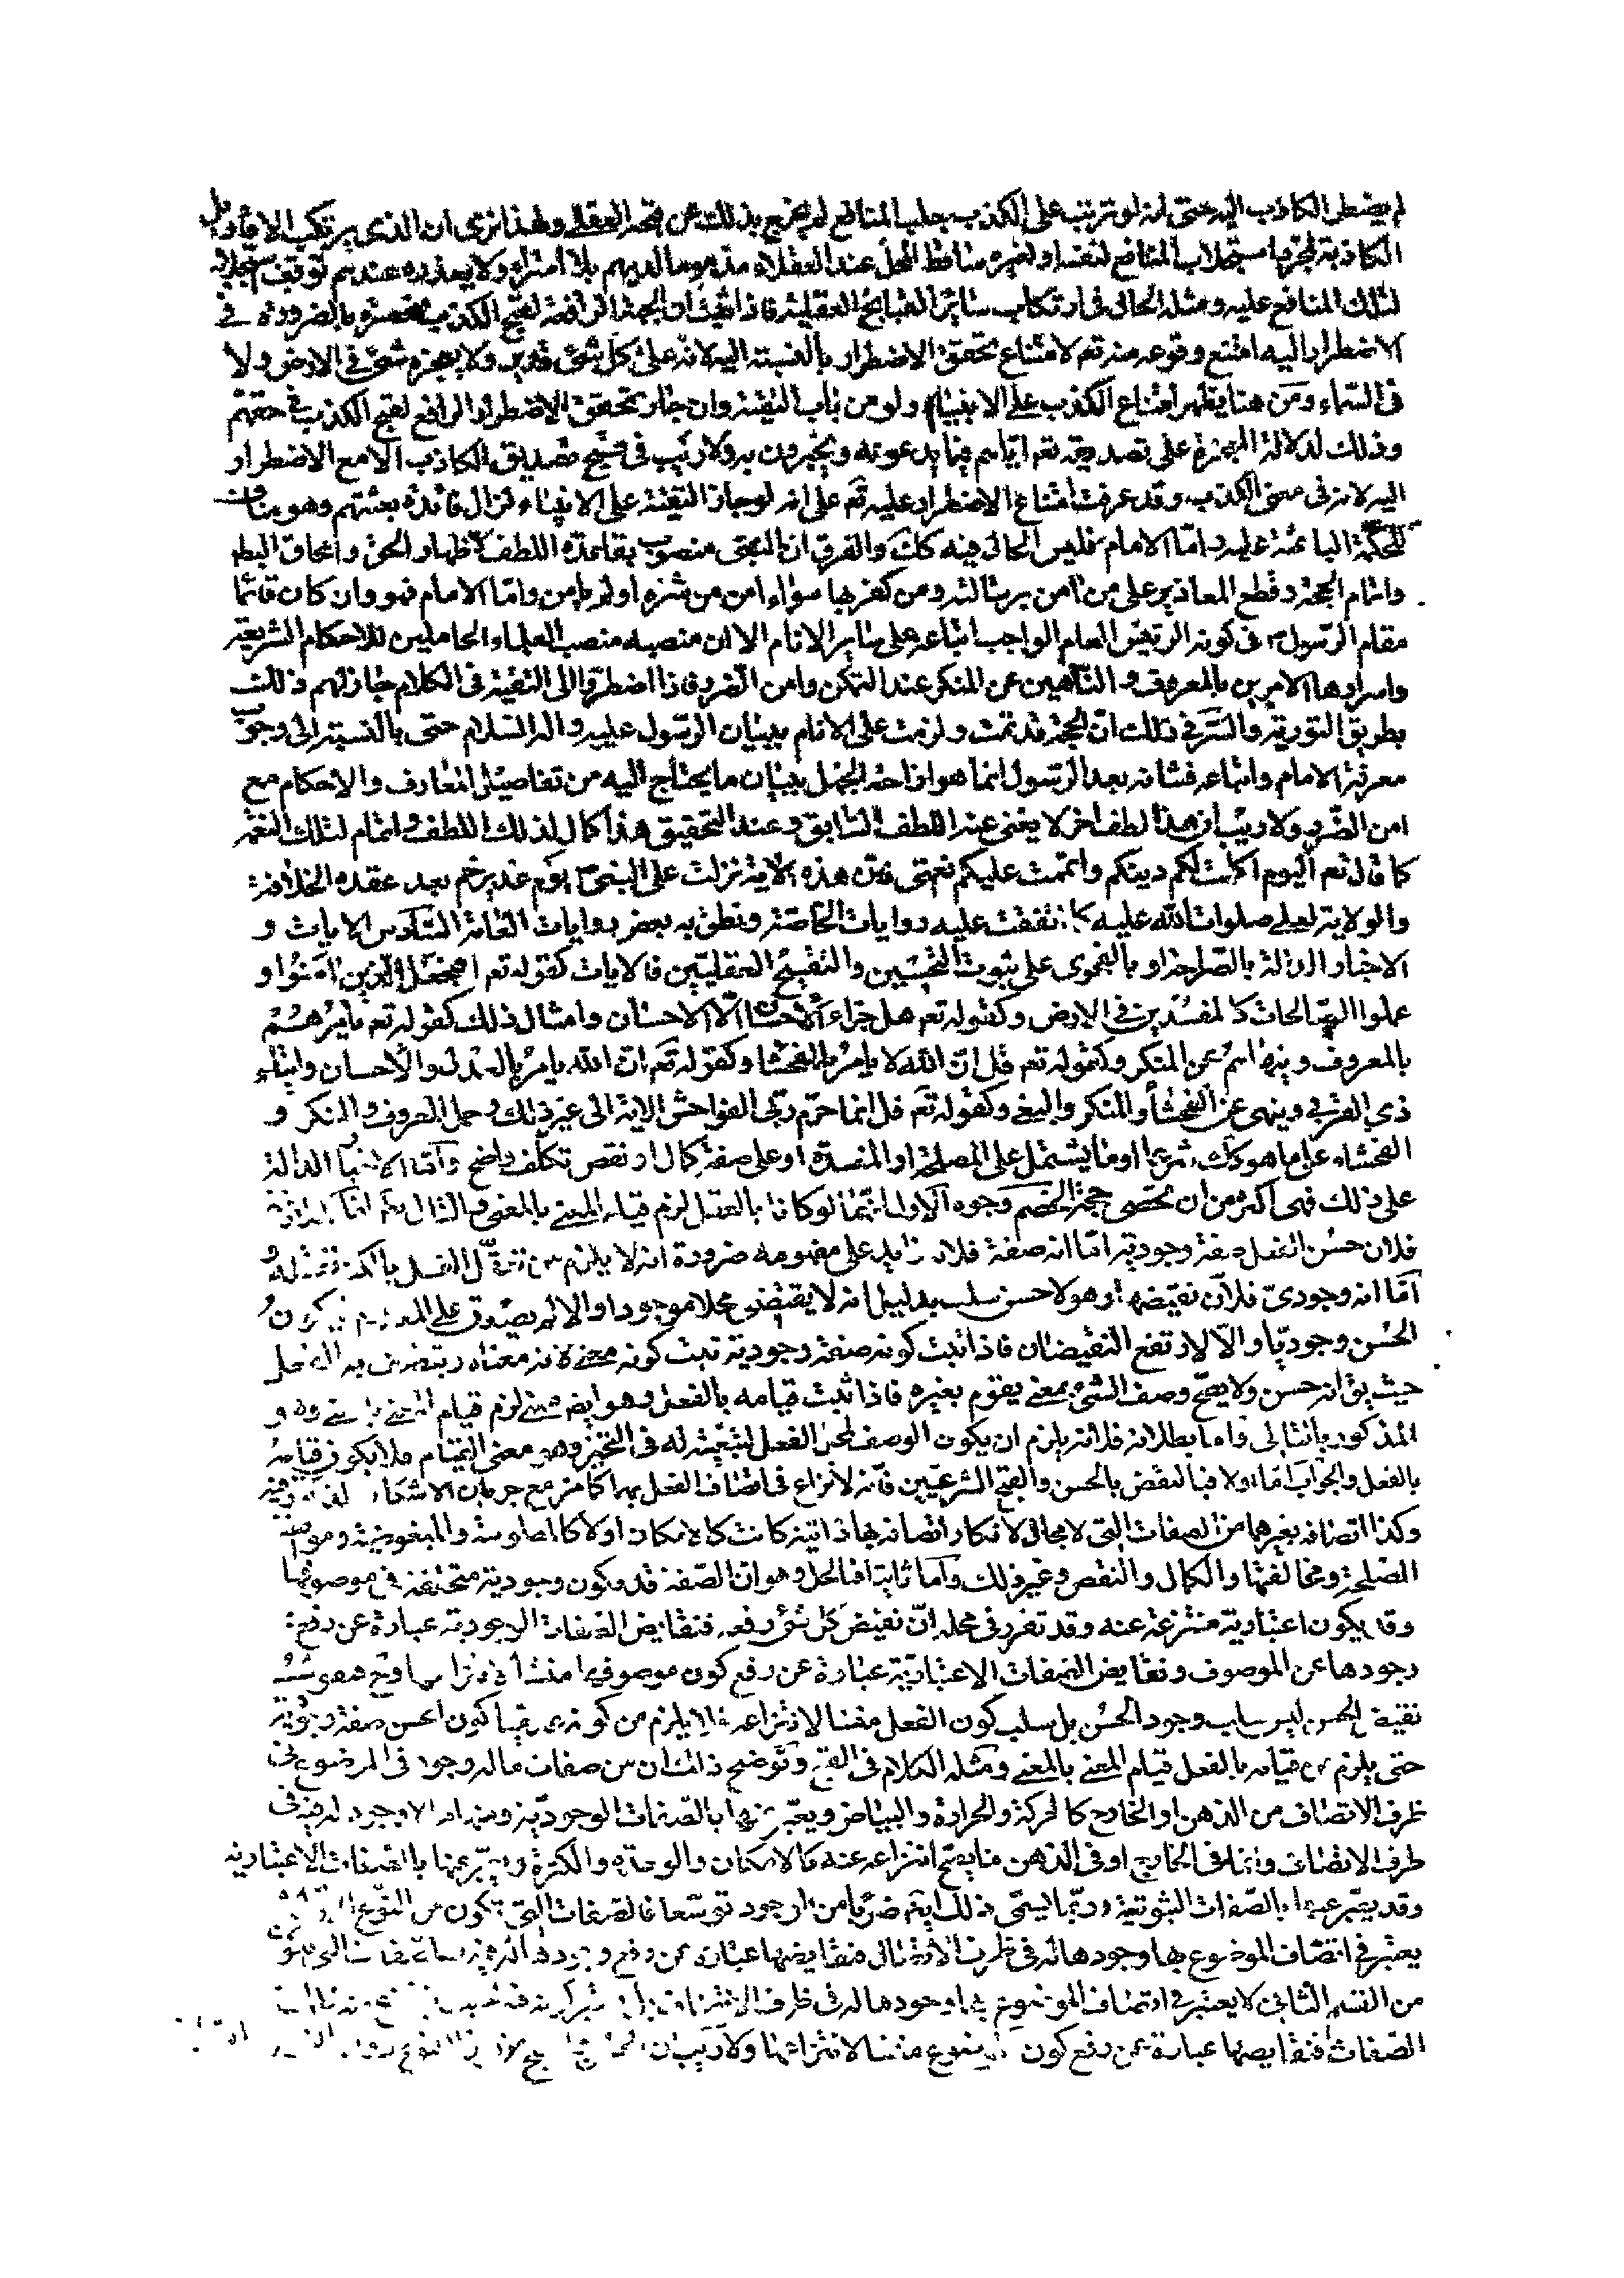 لم يضطر الكاذب اليه حتى انه لو ترتب على الكذب جلب المنافع لم يخرج بذلك عن قبحه العقلى ولهذا نرى ان الذى يرتكب الاقاويل
الكاذبة لمجرد استجلاب المنافع لنفسه او لغيره ساقط المحل عند العقلاء مذموما لديهم بلا امتراء ولا يعذره عندهم توقف استجلابه
لتلك المنافع عليه ومثله الحال فى ارتكاب سائر القبائح العقلية فاذا ثبت ان الجهة الرافعة لقبح الكذب منحصرة بالضرورة فى
الاضطرار اليه امتنع وقوعه منه تع لامتناع تحقق الاضطرار بالنسبة اليه لانه على كل شئ قدير ولا يعجزه شئ فى الارض ولا
فى السماء ومن هنا يظهر امتناع الكذب على الانبياء ولو من باب التقية وان جاز تحقق الاضطرار الرافع لقبح الكذب فى حقهم
وذلك لدلالة المعجزة على تصديقه تع اياهم فيما يدعونه ويخبرون به ولا ريب فى قبح تصديق الكاذب الا مع الاضطرار
اليه لانه فى معنى الكذب وقد عرفت امتناع الاضطرار عليه تع على انه لو جاز التقية على الانبياء لزال فائدة بعثتهم وهو مناف
للحكمة الباعثة عليه واما الامام فليس الحال فيه كك والفرق ان النبى منصوب بقاعدة اللطف لاظهار الحق وامحاق البطل
واتمام الحجة وقطع المعاذير على من امن برسالته ومن كفر بها سواء امن من شره او لم يامن واما الامام فهو وان كان قائما
مقام الرسول فى كونه الرئيس العام الواجب اتباعه على سائر الانام الا ان منصبه منصب العلماء الحاملين للاحكام الشريعة
واسرارها الامرين بالمعروف والناهين عن المنكر عند التمكن وامن الضرر فاذا اضطروا الى التقية فى الكلام جاز لهم ذلك
بطريق التورية والسر فى ذلك ان الحجة قد تمت ولزمت على الانام ببيان الرسول عليه واله السلام حتى بالنسبة الى وجوب
معرفة الامام واتباعه فشانه بعد الرسول انما هو ازاحة الجهل ببيان ما يحتاج اليه من تفاصيل المعارف والاحكام مع
امن الضرر ولا ريب ان هذا لطف اخر لا يغنى عنه اللطف السابق وعند التحقيق هذا كمال لذلك اللطف واتمام لتلك النعمة
كما قال تع اليوم اكملت لكم دينكم واتممت عليكم نعمتى فان هذه الاية نزلت على النبى يوم غدير خم بعد عقده الخلافة
والولاية لعلى صلوات الله عليه كما اتفقت عليه روايات الخاصة ونطق به بعض روايات العامة السادس الايات و
الاخبار الدالة بالصراحة او بالفحوى على ثبوت التحسين والتقبيح العقليين فالايات كقوله تع ام نجعل الذين امنوا و
عملوا الصالحات كالمفسدين فى الارض وكقوله تع هل جزاء الاحسان الا الاحسان وامثال ذلك كقوله تع يامرهم
بالمعروف وينهاهم عن المنكر وكقوله تع قل ان الله لا يامر بالفحشاء وكقوله تع ان الله يامر بالعدل والاحسان وايتاء
ذى القربى وينهى عن الفحشاء والمنكر والبغى وكقوله تع قل انما حرم ربى الفواحش الاية الى غير ذلك وحمل المعروف والمنكر و
الفحشاء على ما هو كك شرعا او ما يشتمل على المصلحة او المفسدة او على صفة كمال او نقص تكلف واضح واما الاخبار الدالة
على ذلك فهى اكثر من ان تحصى حجة الخصم وجوه الاول انهما لو كانا بالعقل لزم قيام المعنى بالمعنى والتالى بط اما الملازمة
فلان حسن الفعل صفة وجودية اما انه صفة فلانه زايد على مفهومه ضرورة انه لا يلزم من تعقل الفعل بالكنه تعقله
اما انه وجودى فلان نقيضه وهو لا حسن سلب بدليل انه لا يقتضى محلا موجودا والا لم يصدق على المعدوم فيكون
الحسن وجوديا والا لارتفع النقيضان فاذا ثبت كونه صفة وجودية ثبت كونه معنى لانه معناه ويتصف به الفعل
حيث يق انه حسن ولا يصح وصف الشئ بمعنى يقوم بغيره فاذا ثبت قيامه بالفعل وهو ايض معنى لزم قيام المعنى بالمعنى وهو
المذكور بالتالى واما بطلانه فلانه يلزم ان يكون الوصف لمحل الفعل لتبعيته له فى التحيز وهو معنى القيام فلا يكون قيامه
بالفعل والجواب اما اولا فبالنقض بالحسن والقبح الشرعيين فانه لا نزاع فى اتصاف الفعل بهما كما مر مع جريان الاشكال
وكذا اتصافه بغيرهما من الصفات التى لا مجال لانكار اتصافه بها ذاتية كانت كالامكان او لا كالمطلوبية والمبغوضية وموافقة
المصلحة ومخالفتها والكمال والنقص وغير ذلك واما ثانيا فبالحل وهو ان الصفة قد يكون وجودية متحققة فى موصوفها
وقد يكون اعتبارية منتزعة عنه وقد تقرر فى محله ان نقيض كل شئ رفعه فنقايض الصفات الوجودية عبارة عن رفع
وجودها عن الموصوف ونقايض الصفات الاعتبارية عبارة عن رفع كون موصوفها منشا لانتزاعها وح
نقيض الحسن ليس سلب وجود الحسن بل سلب كون الفعل منشا لانتزاعه فلا يلزم من كونه سلبا كون الحسن صفة وجودية
حتى يلزم من قيامه بالفعل قيام المعنى بالمعنى ومثله الكلام فى القبح وتوضيح ذلك ان من صفات ما له وجود فى الموضوع فى
ظرف الاتصاف من الذهن او الخارج كالحركة والحرارة والبياض ويعبر عنها بالصفات الوجودية ومنها ما لا وجود له فيه فى
ظرف الاتصاف وانما فى الخارج او فى الذهن ما يصح انتزاعه عنه كالامكان والوحدة والكثرة ويعبر عنها بالصفات الاعتبارية
وقد يعبر عنها بالصفات الثبوتية وربما يسمى ذلك ايض ضربا من الوجود توسعا فالصفات التى تكون من النوع
يعتبر فى اتصاف الموضوع بها وجودها له فى ظرف الاتصاف فنقايضها عبارة عن رفع وجودها
من القسم الثانى لا يعتبر فى اتصاف الموضوع بها وجودها له فى ظرف الاتصاف
الصفات فنقايضها عبارة عن رفع كون الموضوع منشا لانتزاعها ولا ريب ان